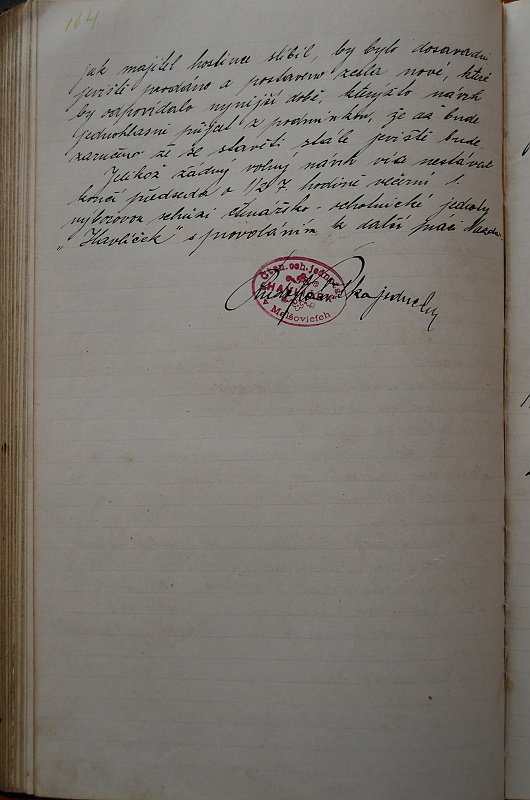 164
jak majitel hostince slíbil, by bylo dosavadní
jeviště prodáno a postaveno zcela nové, které
by odpovídalo nynější době, kterýžto návrh
jednohlasně přijat z podmínkou, že až bude
zaručeno že se stavěti stálé jeviště bude.
Jelikož žádný volný návrh více nestával
končí předseda o 1/2 7. hodině večerní 1.
výborovou schůzi čtenářsko-ochotnické jednoty
„Havlíček" s provoláním k další práci Nazdar.
Čten. och. jednota
v Melšovicích
jednatel